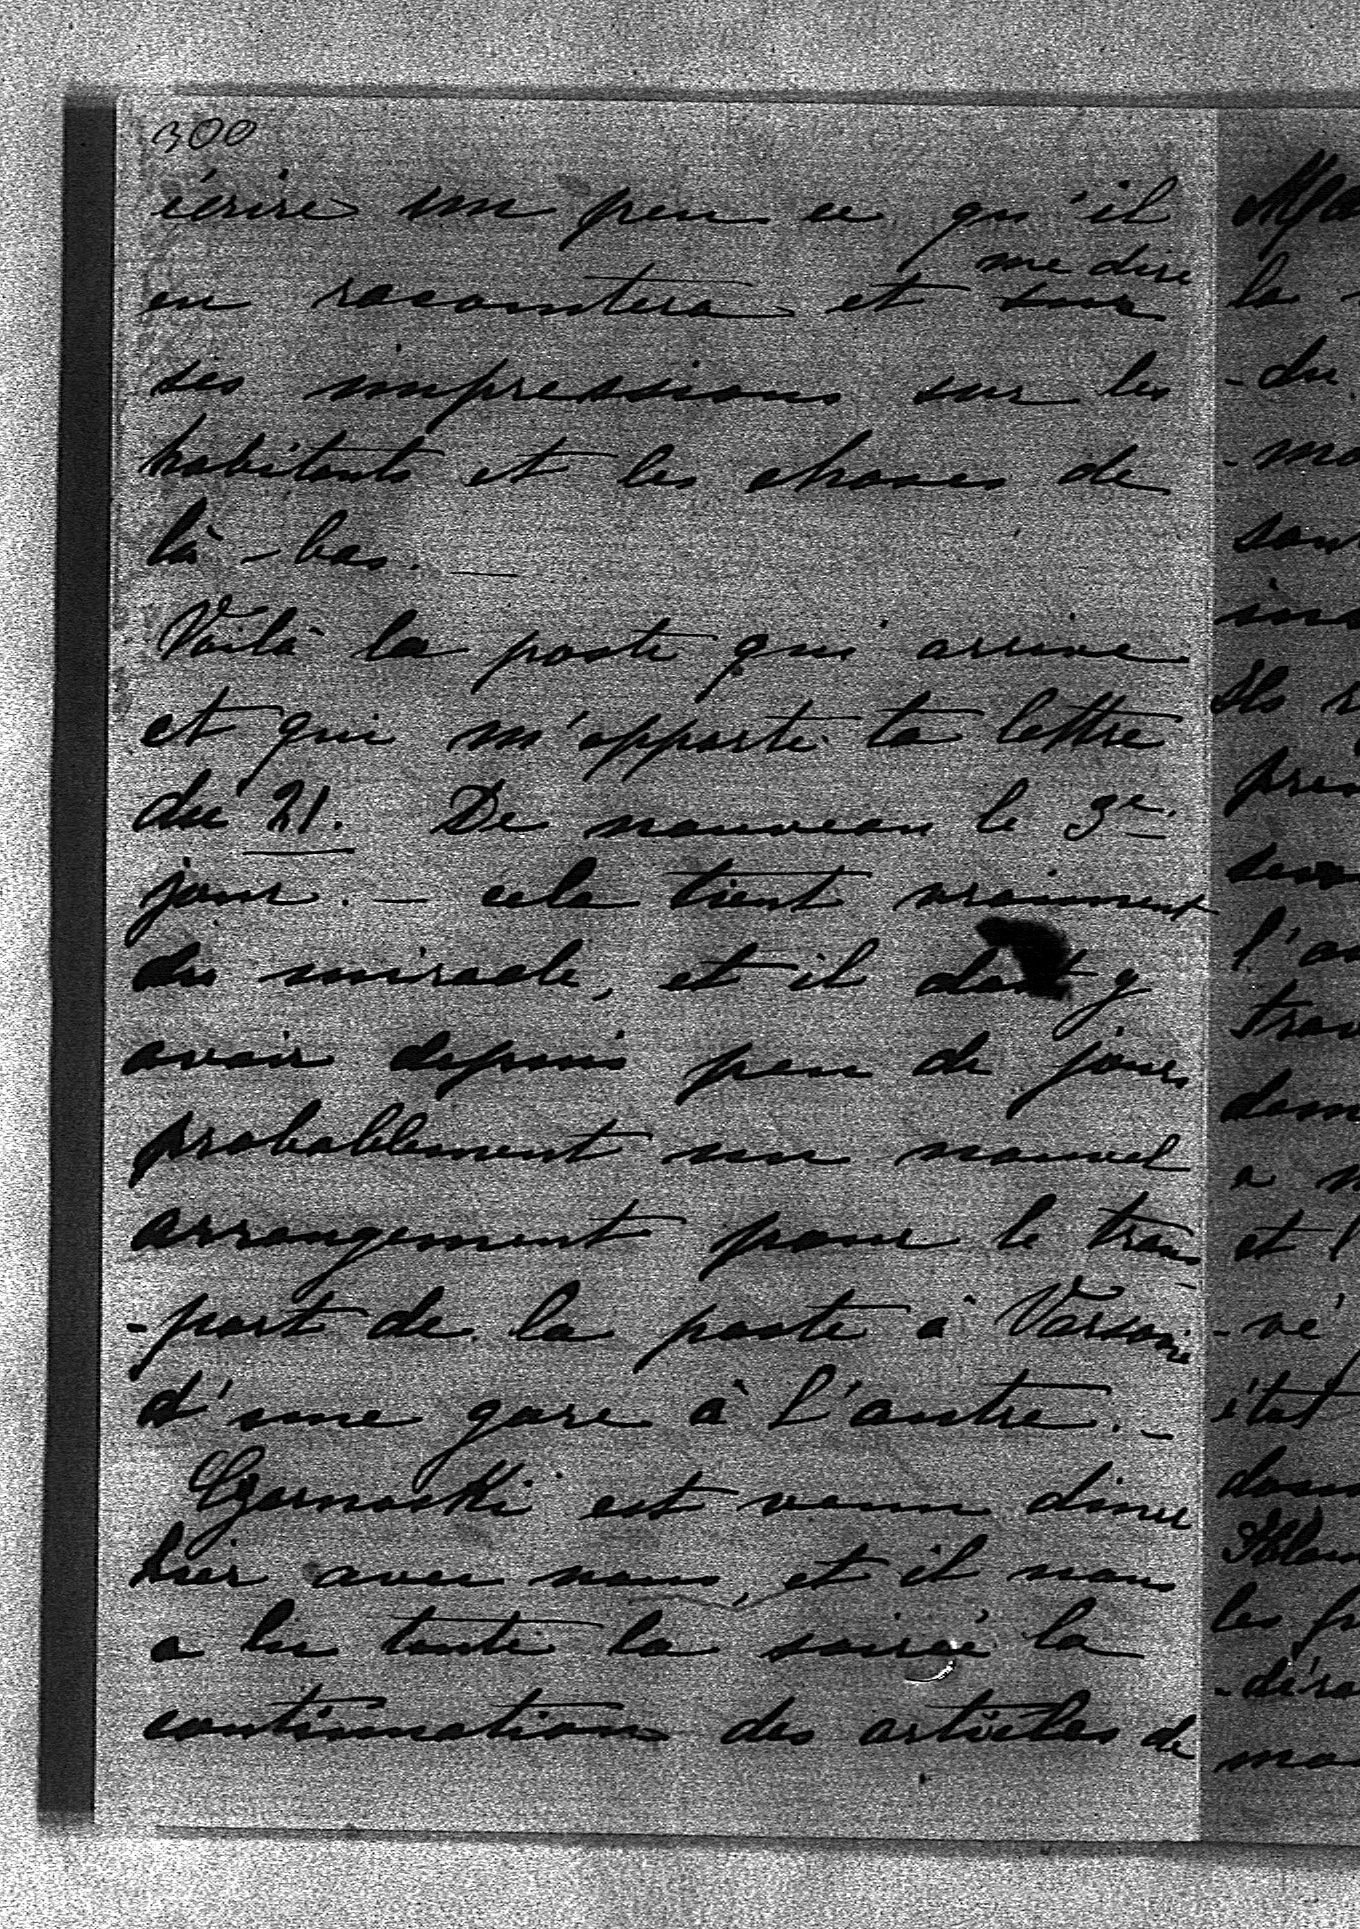 300
écrire un peu ce qu'il
me dire
en racontera et sur
ses impressions sur les
habitants et les choses de
là-bas. —
Voilà la poste qui arrive
et qui m'apporte ta lettre
du 21. De nouveau le 3e
jour. — cela tient vraiment
du miracle, et il doit y
avoir depuis peu de jours
probablement un nouvel
arrangement pour le trans
-port de la poste à Varsovie
d'une gare à l'autre. —
Czarnoski est venu diner
hier avec nous, et il nous
a lu toute la soirée la
continuation des articles de
la
-du
et l
-vé
état